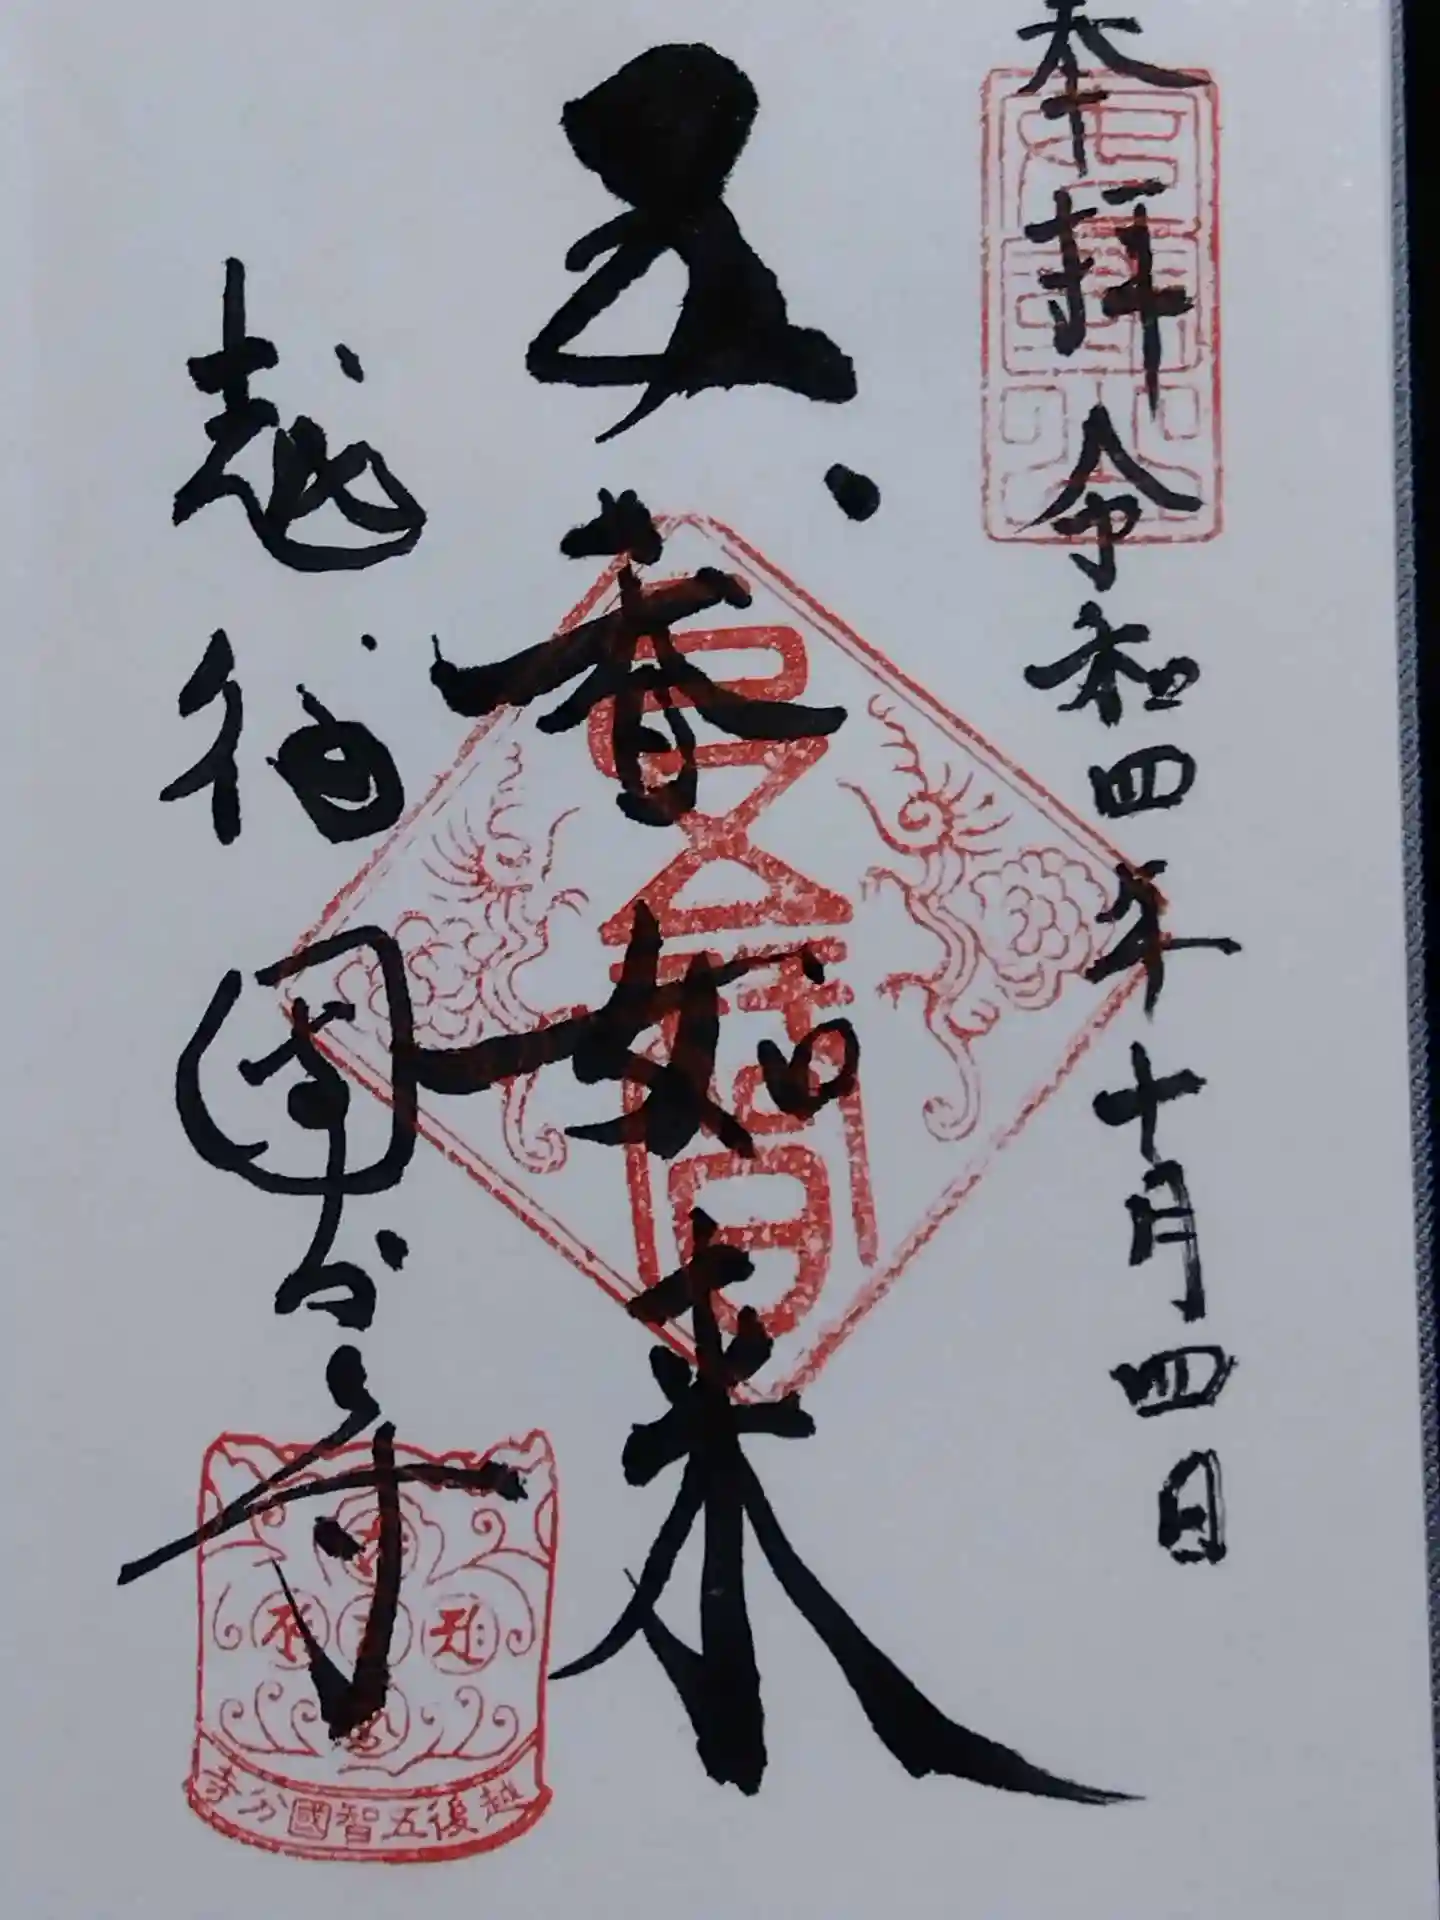 奉拝 令和四年十月四日
五智如来
越後国分寺
越後五智國分寺